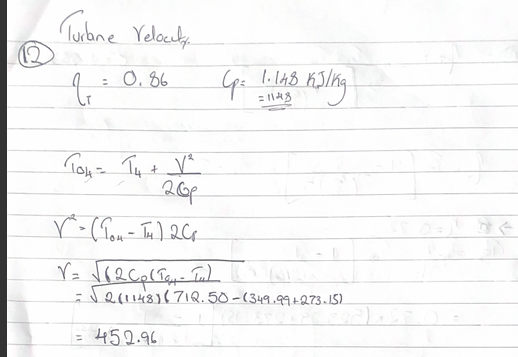 Turbine Velocity.
12
η_T = 0.86 Cp = 1.148 KJ/kg
= 1148
T₀₄ = T₄ + V²/2Cp
V² = (T₀₄ - T₄) 2Cp
V = √(2Cp(T₀₄ - T₄)
= √2(1148)(712.50 - (349.99+273.15)
= 452.96